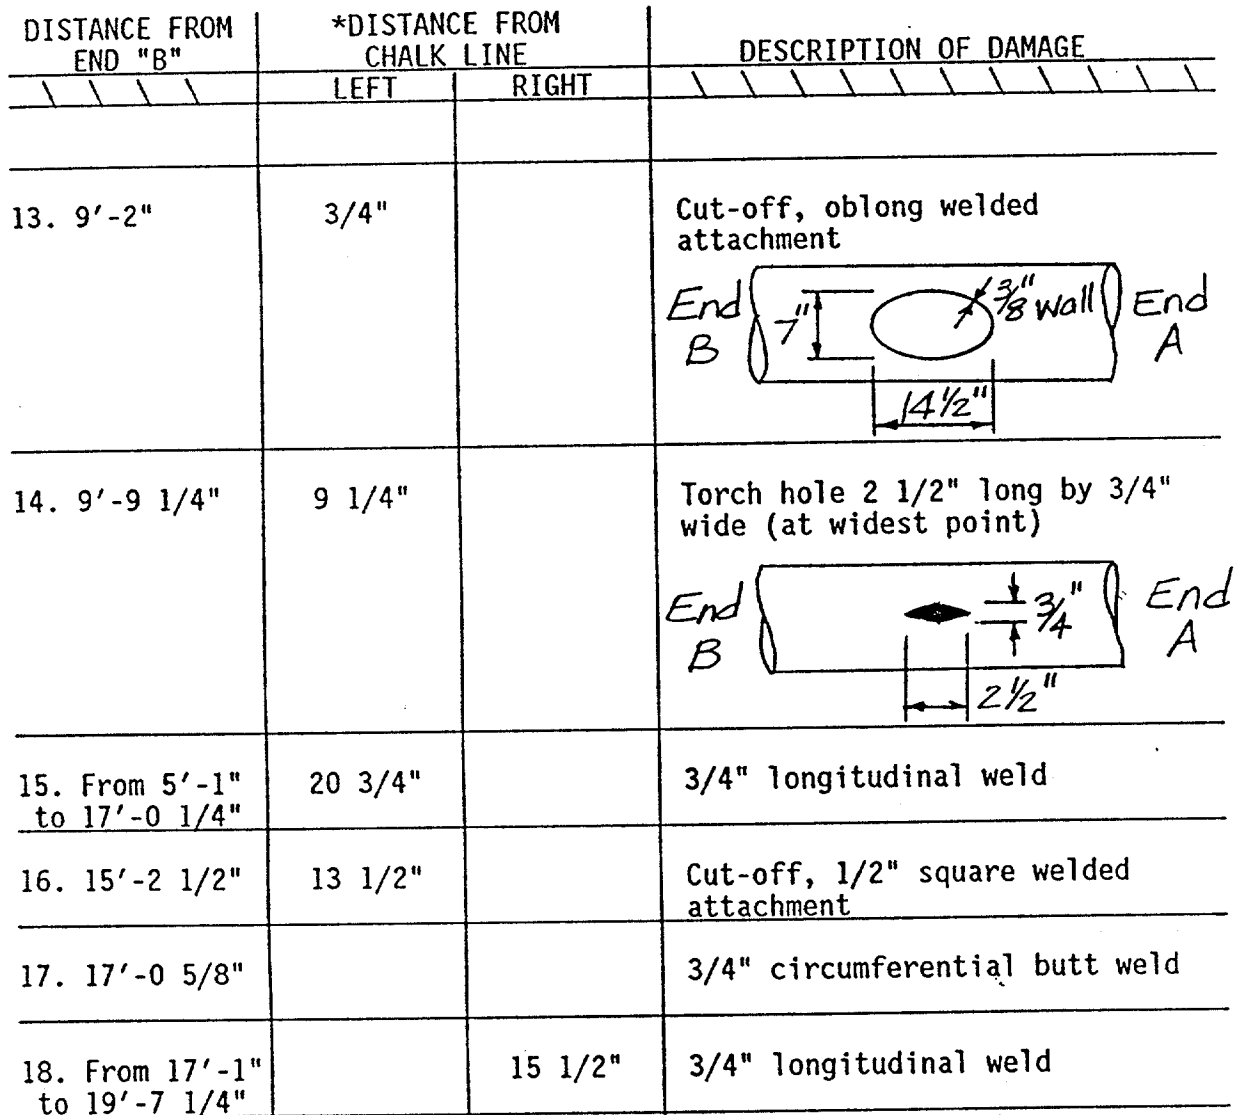 DISTANCE FROM
END "B"
*DISTANCE FROM
CHALK LINE
DESCRIPTION OF DAMAGE
LEFT RIGHT
13. 9'-2" 3/4" Cut-off, oblong welded
attachment
End
B
7"
3/8" wall
End
A
14 1/2"
14. 9'-9 1/4" 9 1/4" Torch hole 2 1/2" long by 3/4"
wide (at widest point)
End
B
3/4"
End
A
2 1/2"
15. From 5'-1" 20 3/4" 3/4" longitudinal weld
to 17'-0 1/4"
16. 15'-2 1/2" 13 1/2" Cut-off, 1/2" square welded
attachment
17. 17'-0 5/8" 3/4" circumferential butt weld
18. From 17'-1" 15 1/2" 3/4" longitudinal weld
to 19'-7 1/4"